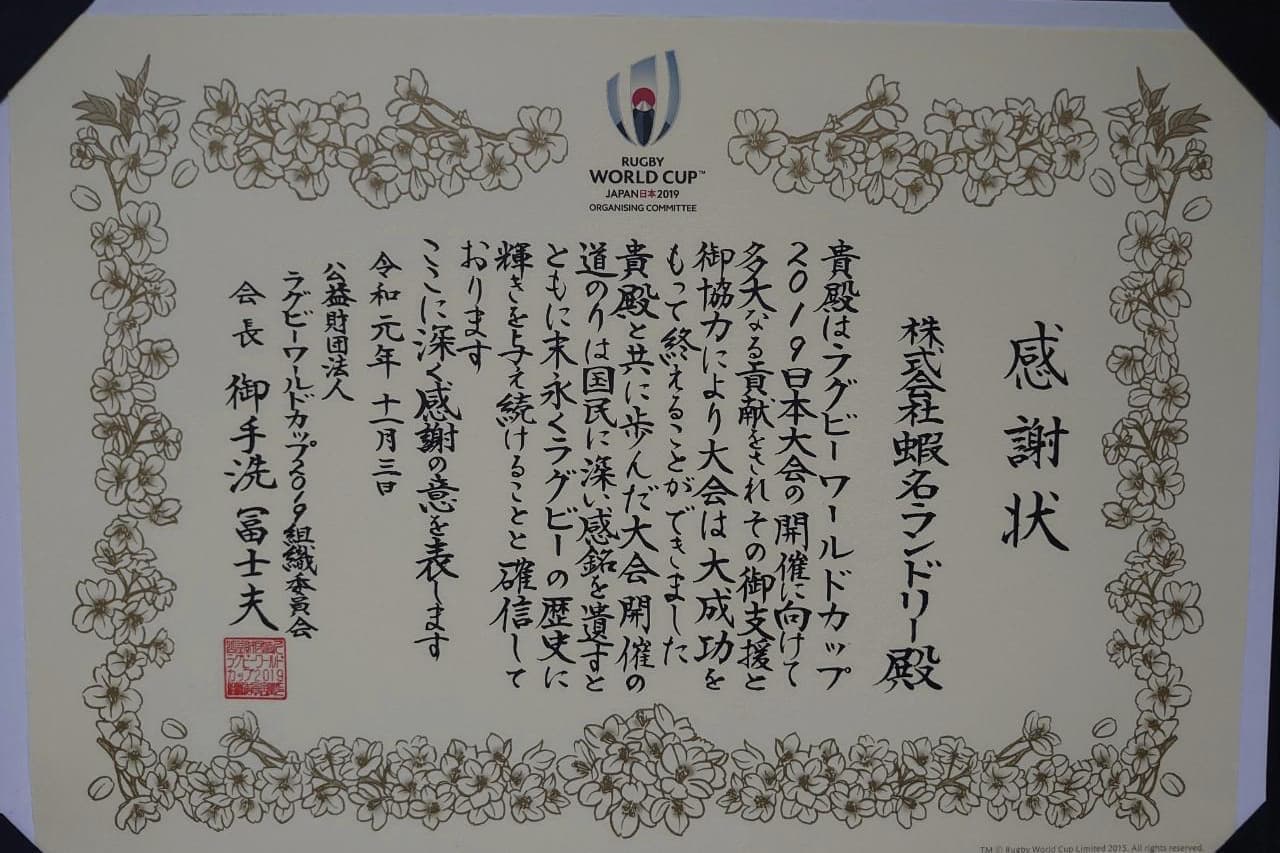 RUGBY
WORLD CUP™
JAPAN日本2019
ORGANISING COMMITTEE
感謝状
株式会社蝦名ランドリー殿
貴殿はラグビーワールドカップ
2019日本大会の開催に向けて
多大なる貢献をされその御支援と
御協力により大会は大成功を
もって終えることができました
貴殿と共に歩んだ大会開催の
道のりは国民に深い感銘を遺すと
ともに末永くラグビーの歴史に
輝きを与え続けることと確信して
おります
ここに深く感謝の意を表します
令和元年十一月三日
公益財団法人
ラグビーワールドカップ2019組織委員会
会長 御手洗冨士夫
ラグビーワールド
カップ2019
TM © Rugby World Cup Limited 2015. All rights reserved.